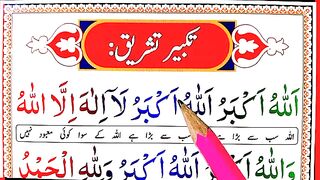 تکبیر تشریق:
اَللهُ اَکْبَرُ اَللهُ اَکْبَرُ لَآ اِلٰهَ اِلَّا اللهُ
اللہ سب سے بڑا ہے سب سے بڑا ہے اللہ کے سوا کوئی معبود نہیں
وَاللهُ اَکْبَرُ اَللهُ اَکْبَرُ وَلِلّٰهِ الْحَمْدُ